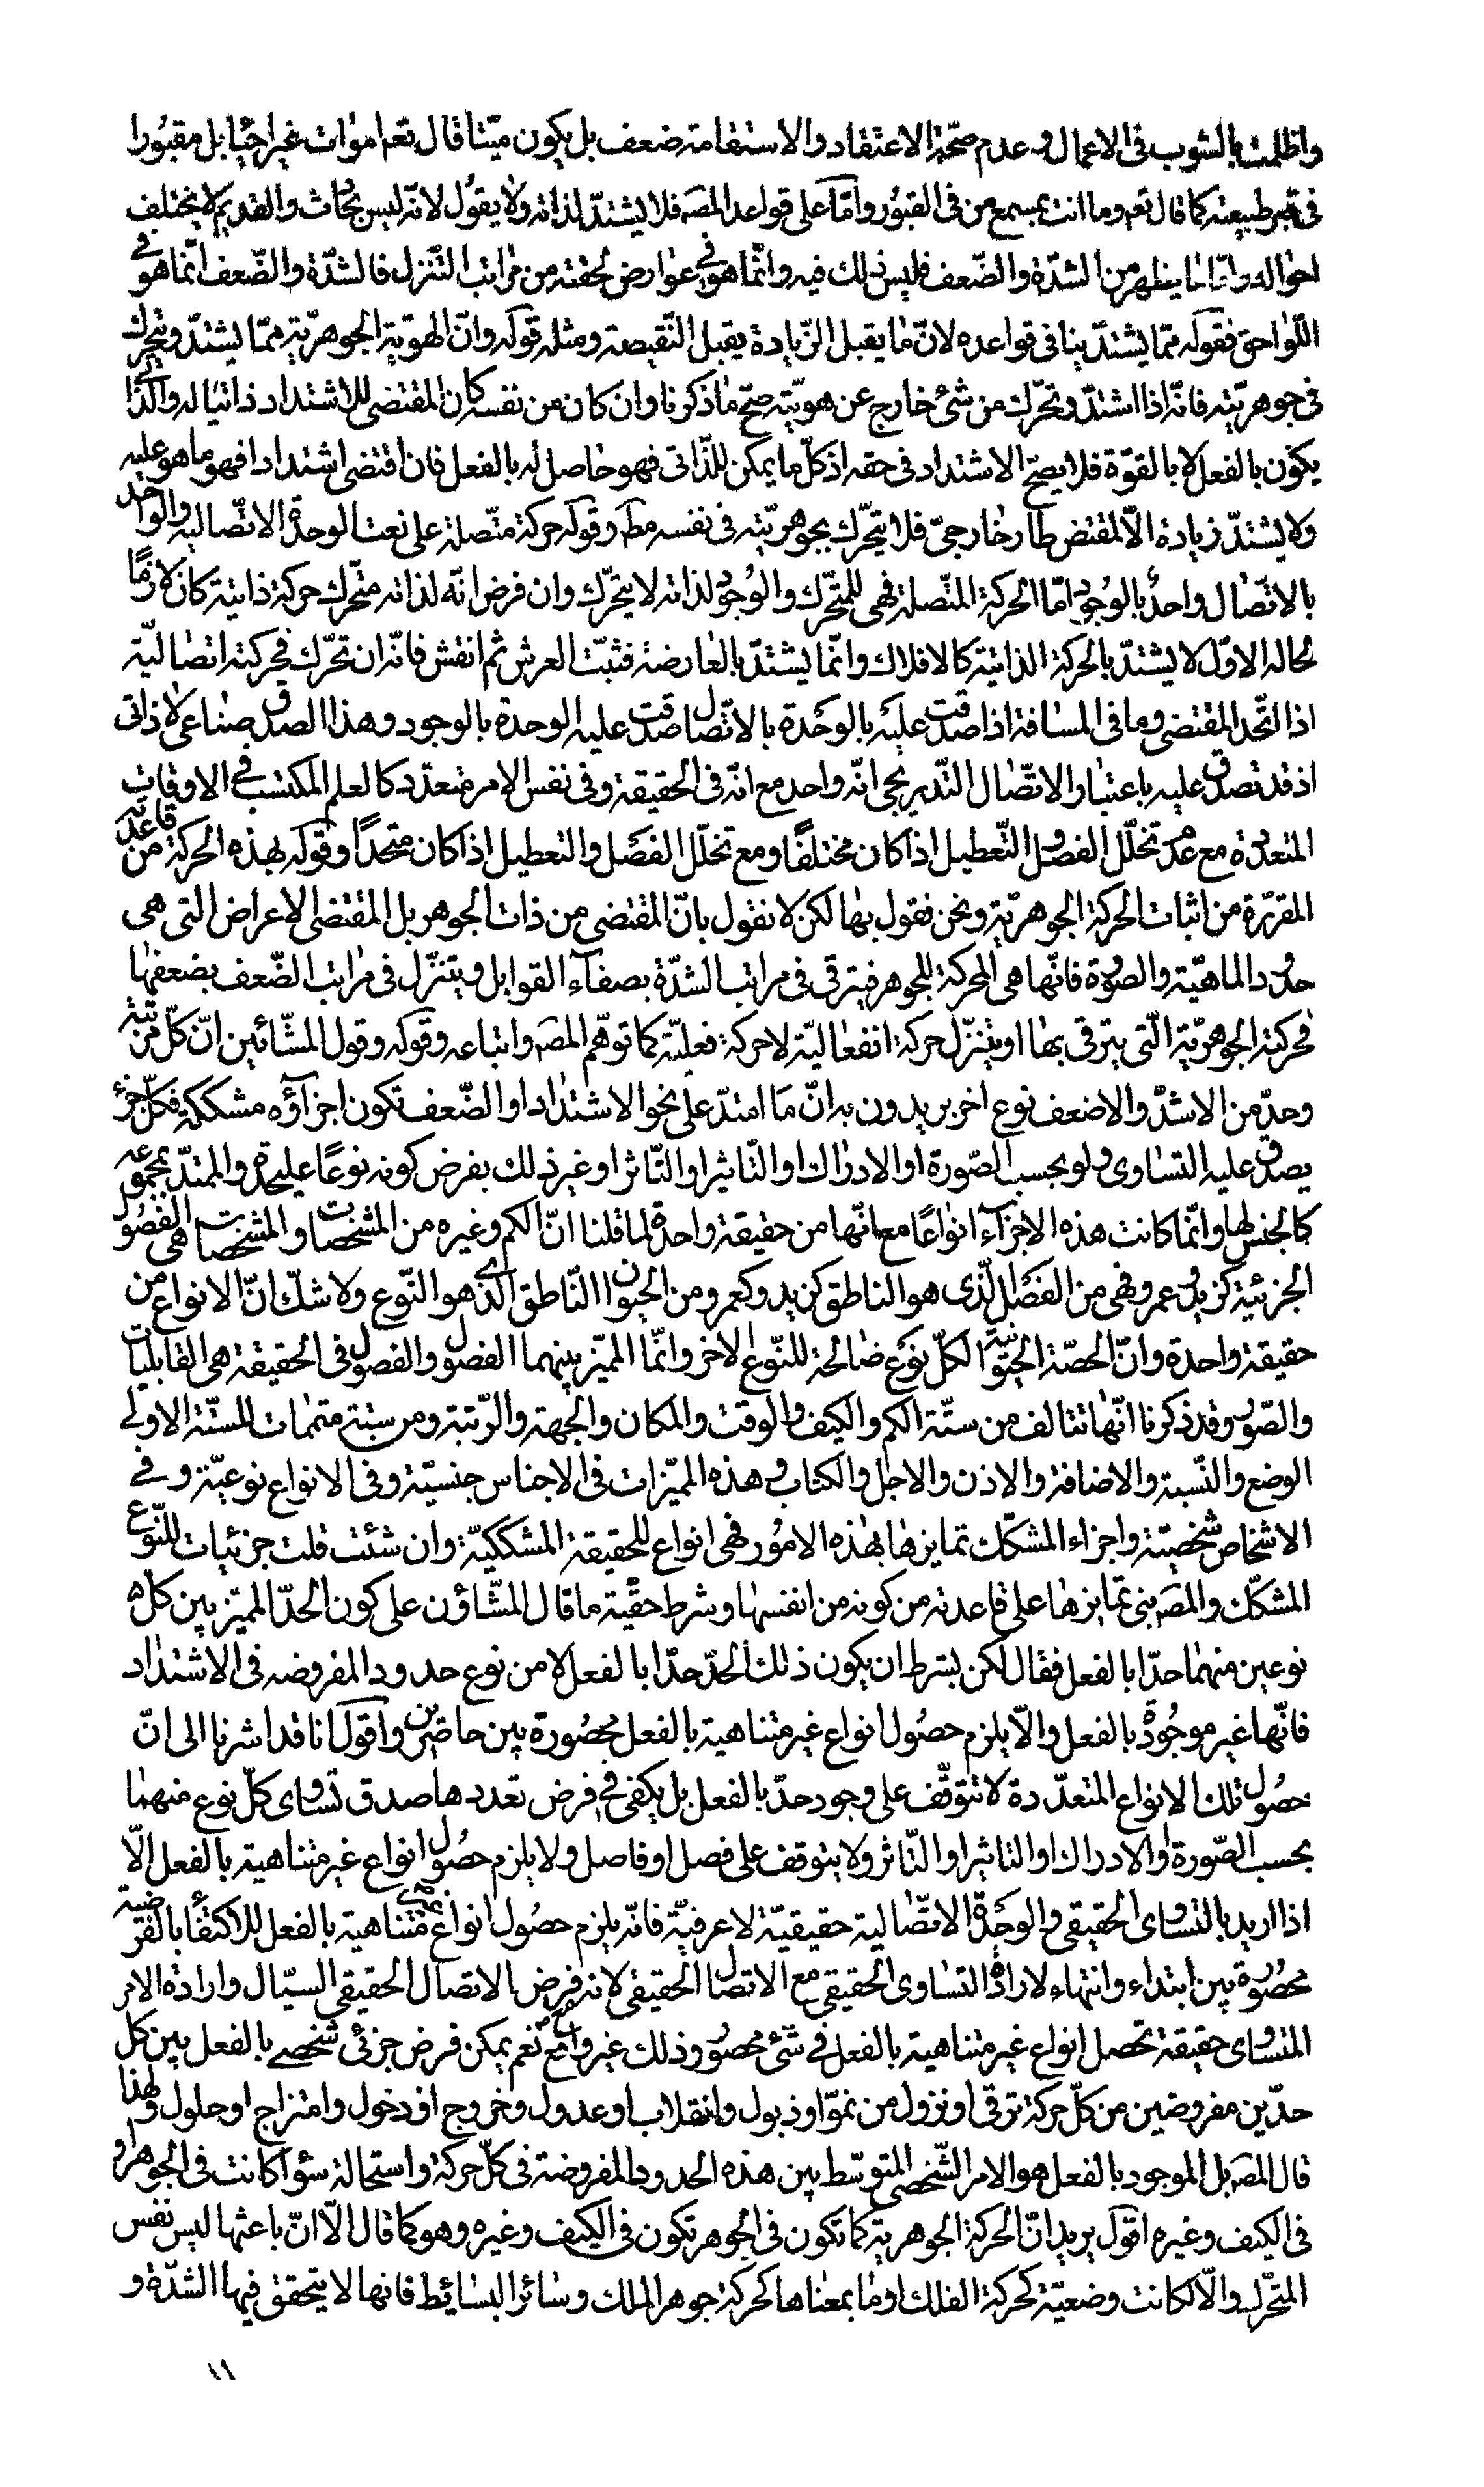 واظلمت بالشوب فى الاعمال و عدم صحّة الاعتقاد والاستقامة ضعف بل يكون ميّتا قال تعم اموات غير احياء بل مقبُورا
فى قبر طبيعته كما قال تعم وما انت بمسمع من فى القبُور وامّا على قواعد المصَه فلا يشتدّ لذاته ولا يقول لانّه ليس بحادث والقديم لا يختلف
احواله وامّا ما يظهر من الشدّة والضّعف فليس ذلك فيه وانّما هو فى عوارض لحقته من مراتب التّنزل فالشدّة والضّعف انّما هو فى
اللّواحق فقوله ممّا يشتدّ ينافى قواعده لانّ ما يقبل الزّيادة يقبل النّقيصة ومثله قوله وانّ الهويّة الجوهريّة ممّا يشتدّ ويتحرّك
فى جوهريّته فانّه اذا اشتدّ وتحرّك من شئ خارج عن هويّته صحّ ما ذكرنا وان كان من نفسه كان المقتضى للاشتداد ذاتيّا له والذّاتى
يكون بالفعل لا بالقوّة فلا يصحّ الاشتداد فى حقه اذ كلّ ما يمكن للذّاتى فهو حاصل له بالفعل فان اقتضى اشتدادا فهو ما هو عليه
ولا يشتدّ زيادة الّا لمقتض طار خارجىّ فلا يتحرّك بجوهريّته فى نفسه مطَه وقوله حركة متّصلة على نعت الوحدة الاتّصاليه والواحد
بالاتّصال واحدٌ بالوجود امّا الحركة المتّصلة فهى للمتحرّك والوُجود لذاته لا يتحرّك وان فرض انّه لذاته متحرّك حركة ذاتية كان لازمًا
لحاله الاوّل لا يشتدّ بالحركة الذاتيّة كالافلاك وانّما يشتدّ بالعارضة فثبّت العرش ثم انقش فانّه ان تحرّك فحركته اتصاليّة
اذا اتّحد المقتضى وما فى المسافة اذا صدقت عليه بالوحَدة بالاتّصال صدقت عليه الوحدة بالوجود وهذا الصدق صناعى لا ذاتى
اذ قد تصدق عليه باعتبار الاتّصال التّدريجى انّه واحد مع انّه فى الحقيقة وفى نفس الامر متعدّد كالعلم المكتسب فى الاوقات
المتعدّدة مع عدم تخلّل الفصل والتّعطيل اذا كان مختلفًا ومع تخلّل الفصَل والتعطيل اذا كان متحدًا وقوله بهذه الحركة من قاعدته
المقرّرة من اثبات الحركة الجوهريّة ونحن نقول بها لكن لا نقول بانّ المقتضى من ذات الجوهر بل المقتضى الاعراض التى هى
حدود الماهيّة والصورة فانّها هى المحركة للجوهر فيترقى فى مراتب الشدّة بصفآء القوابل ويتنزّل فى مراتب الضّعف بضعفها
فحركته الجوهريّة الّتى يترقى بها او يتنزّل حركة انفعاليّة لا حركة فعليّة كما توهّم المصَه واتباعه وقوله وقول المشّائين انّ كلّ مرتبة
وحدّ من الاشدّ والاضعف نوع اخر يريدون به انّ ما امتدّ على نحو الاشتداد او الضّعف تكون اجزاؤه مشككة فكلّ جزء
يصدق عليه التساوى ولو بحسب الصّورة او الادراك او التّاثير او التّاثر او غير ذلك بفرض كونه نوعًا عليحدة والممتدّ بمجموعه
كالجنس لها وانّما كانت هذه الاجزآء انواعًا مع انّها من حقيقة واحدة لما قلنا انّ الكم وغيره من المشخّصات والمشخّصات هى الفصُول
الجزئية كزيد وعمرو فهى من الفصَل الّذى هو الناطق كزيد وكعمرو ومن الحيوان النّاطق الذى هو النّوع ولا شكّ انّ الانواع من
حقيقة واحدة وانّ الحصّة الحيوانيّة لكلّ نوع صالحة للنّوع الاخر وانّما المميّز بينهما الفصول والفصول فى الحقيقة هى القابليات
والصّور وقد ذكرنا انّها تتالف من ستّة الكم والكيف والوقت والمكان والجهة والرّتبة ومن ستة متممات للستّة الاولى
الوضع والنّسبة والاضافة والاذن والاجل والكتاب وهذه المميّزات فى الاجناس جنسيّة وفى الانواع نوعيّة وفى
الاشخاص شخصيّة واجزاء المشكّك تمايزها بهذه الامُور فهى انواع للحقيقة المشككيّة وان شئت قلت جزئيات للنّوع
المشكّك والمصَه بنى تمايزها على قاعدته من كونه من انفسها وشرط حقّية ما قال المشّاؤن على كون الحدّ المميّز بين كلّ
نوعين منهما حدّا بالفعل فقال لكن بشرط ان يكون ذلك الحدّ حدّا بالفعل لا من نوع حدود المفروضه فى الاشتداد
فانّها غير موجُودة بالفعل والّا يلزم حصُول انواع غير متناهية بالفعل محصُورة بين حاضرين واقول انا قد اشرنا الى انّ
حصُول تلك الانواع المتعدّدة لا تتوقّف على وجود حدّ بالفعل بل يكفى فى فرض تعددها صدق تساوى كلّ نوع منهما
بحسب الصّورة او الادراك او التاثير او التّاثر ولا يتوقف على فصل او فاصل ولا يلزم حصُول انواع غير متناهية بالفعل الّا
اذا اريد بالتساوى الحقيقى والوحدة الاتصّالية حقيقيّة لا عرفيّة فانّه يلزم حصُول انواع غير متناهية بالفعل للاكتفاء بالفرضية
محصُورة بين ابتداء وانتهاء لارادة التساوى الحقيقى مع الاتصال الحقيقى لانه فرض الاتصال الحقيقى السيّال وارادة الامر
المتساوى حقيقة تحصل انواع غير متناهية بالفعل فى شئ محصُور وذلك غير واقع نعم يمكن فرض جزئى شخصى بالفعل بين كل
حدّين مفروضين من كلّ حركة ترقى او نزول من نموّ او ذبول وانقلاب او عدول وخروج او دخول وامتزاج او حلول ولهذا
قال المصَه بل الموجود بالفعل هو الامر الشّخصى المتوسّط بين هذه الحدود المفروضة فى كلّ حركة واستحالة سوآ كانت فى الجوهر او
فى الكيف وغيره اقول يريد انّ الحركة الجوهرية كما تكون فى الجوهر تكون فى الكيف وغيره وهو كما قال الّا انّ باعثها ليس نفس
المتحّرك والّا لكانت وضعيّة كحركة الفلك او ما بمعناها كحركة جوهر الملك وسائر البسائط فانها لا يتحقق فيها الشدّة و
١١